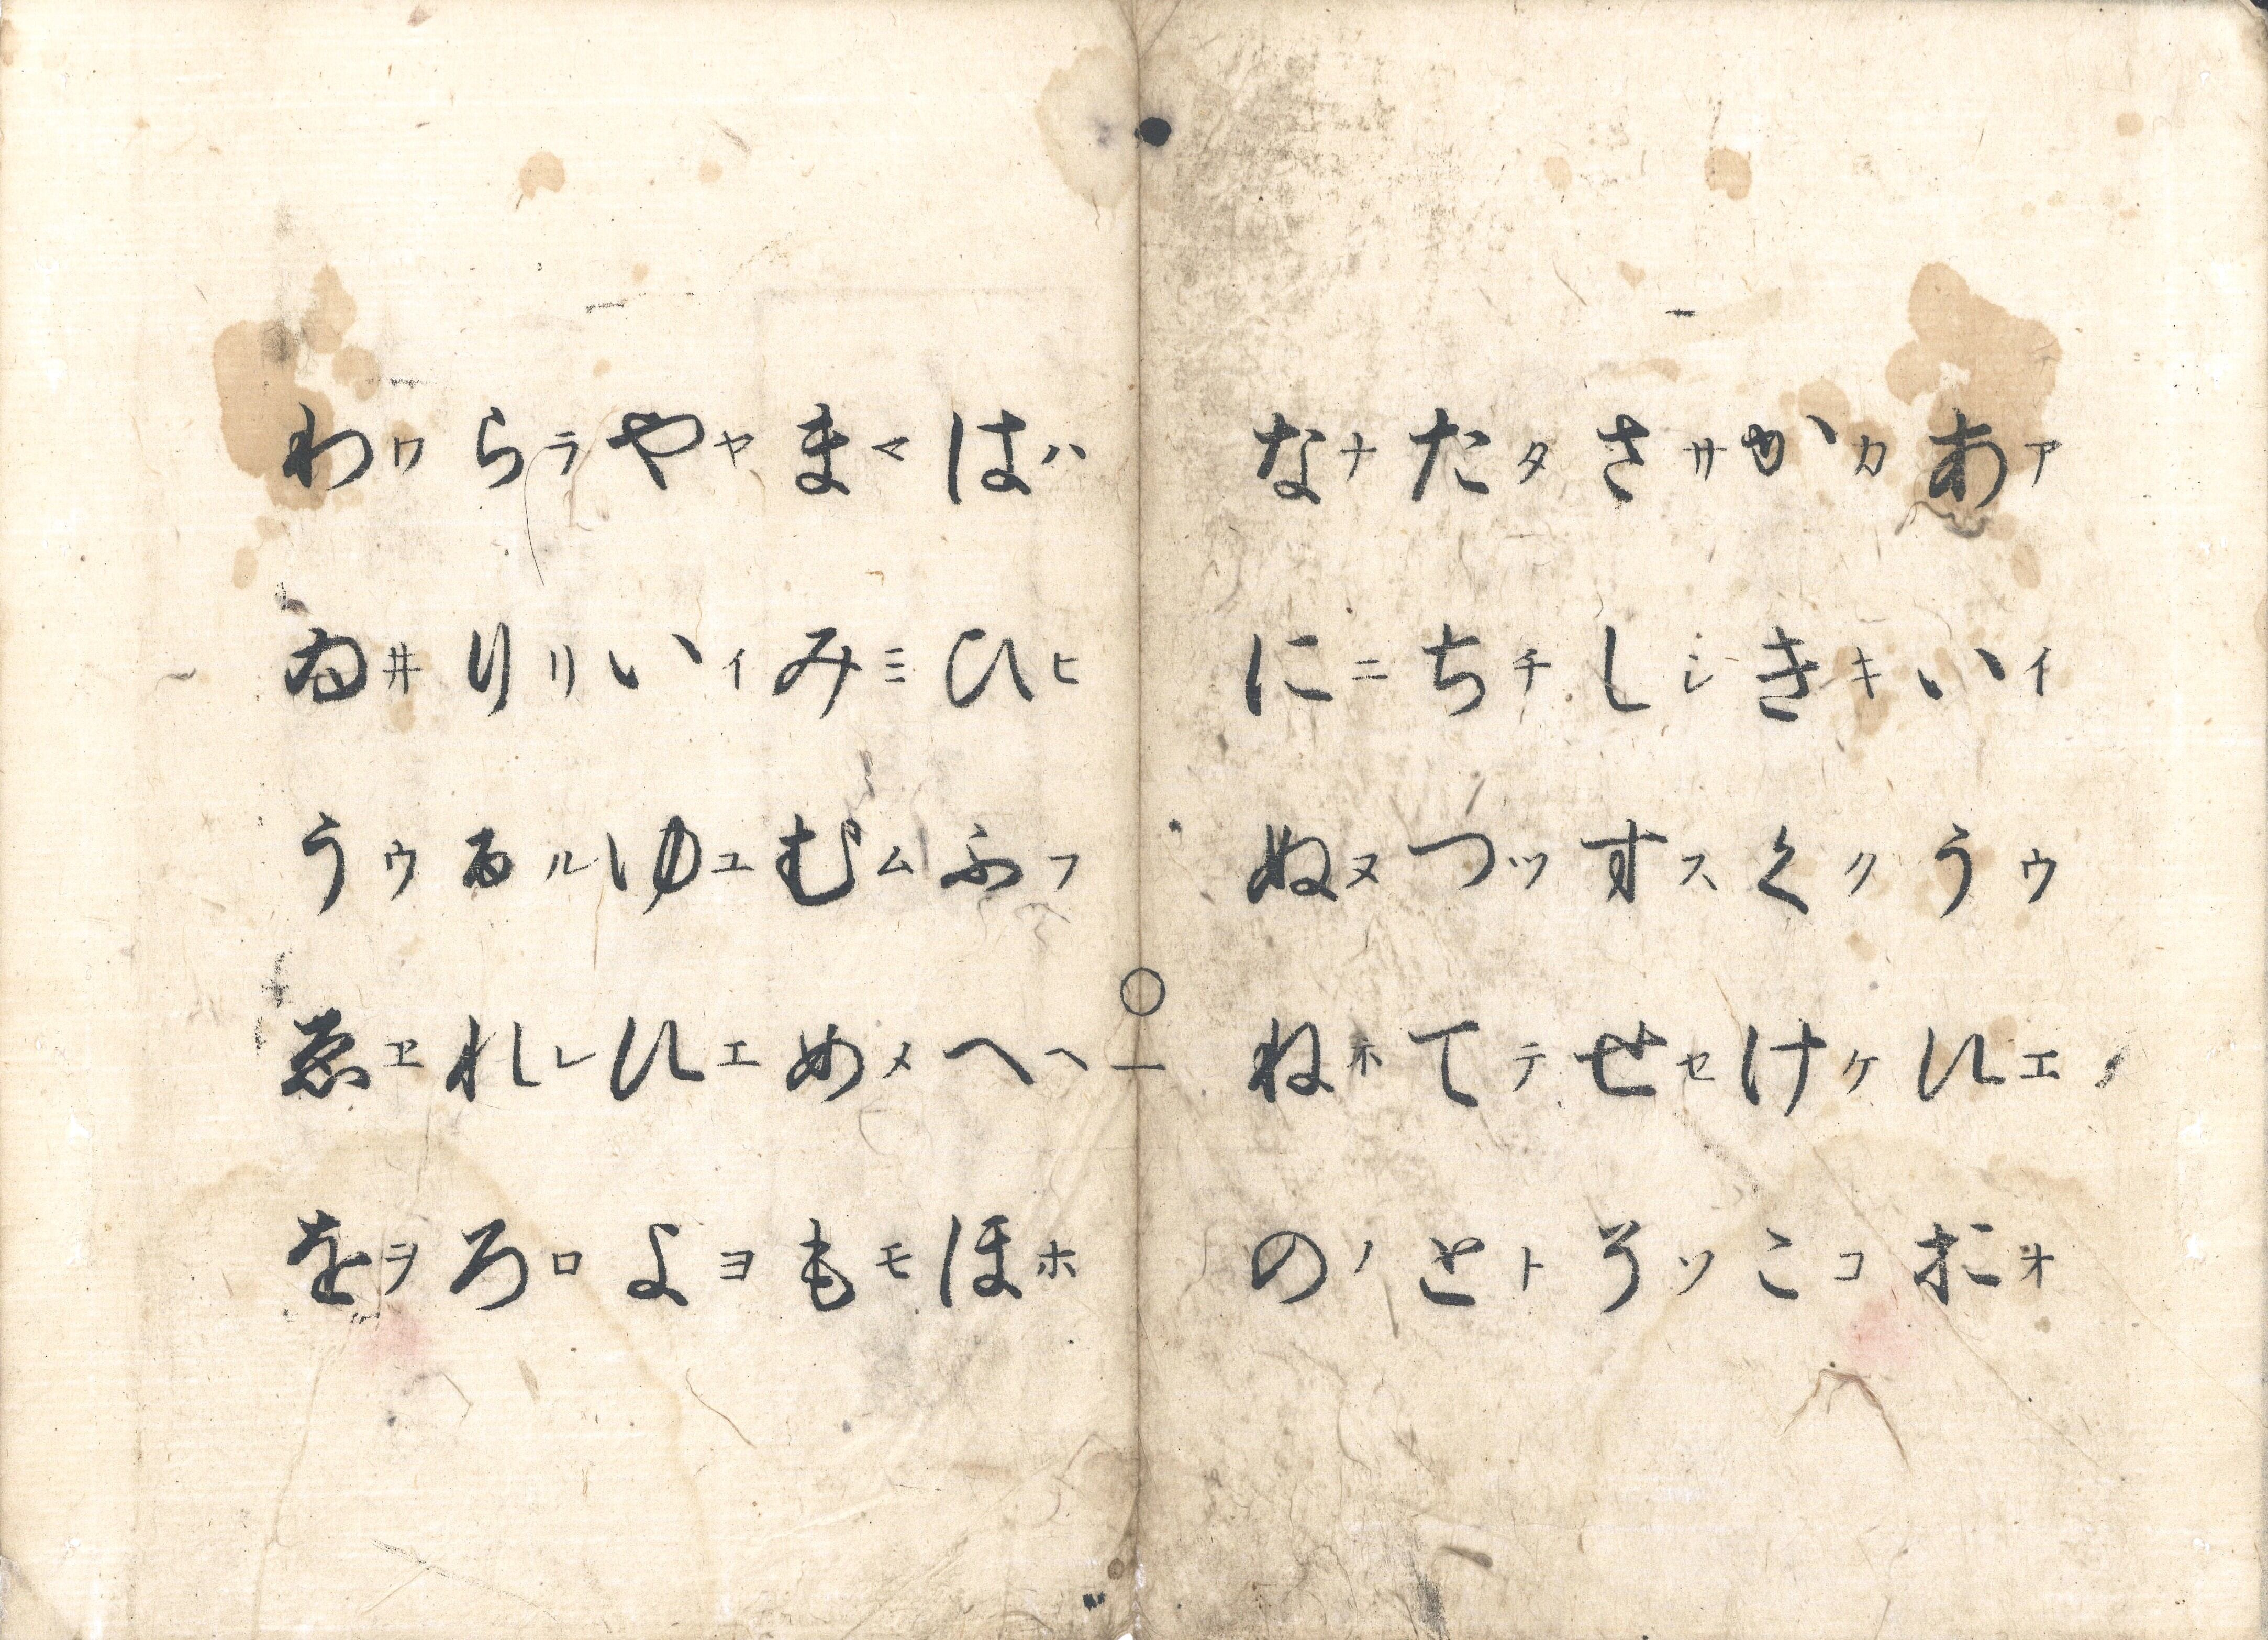 アイウエオ
あいう𛀁お
カキクケコ
かきくけこ
サシスセソ
さしすせそ
タチツテト
たちつてと
ナニヌネノ
なにぬねの
○一
ハヒフヘホ
はひふへほ
マミムメモ
まみむめも
ヤイユエヨ
やいゆ𛀁よ
ラリルレロ
らりるれろ
ワ井ウヱヲ
わゐうゑを